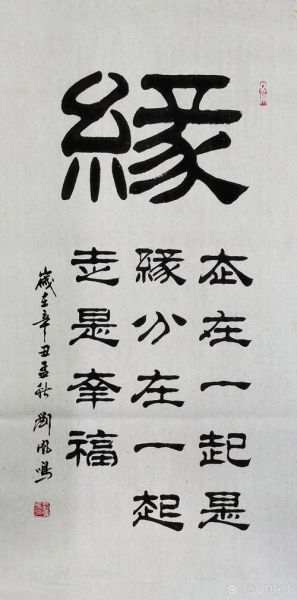 緣
走在一起是
緣分在一起
走是幸福
歲在辛丑孟秋 劉鳳鳴